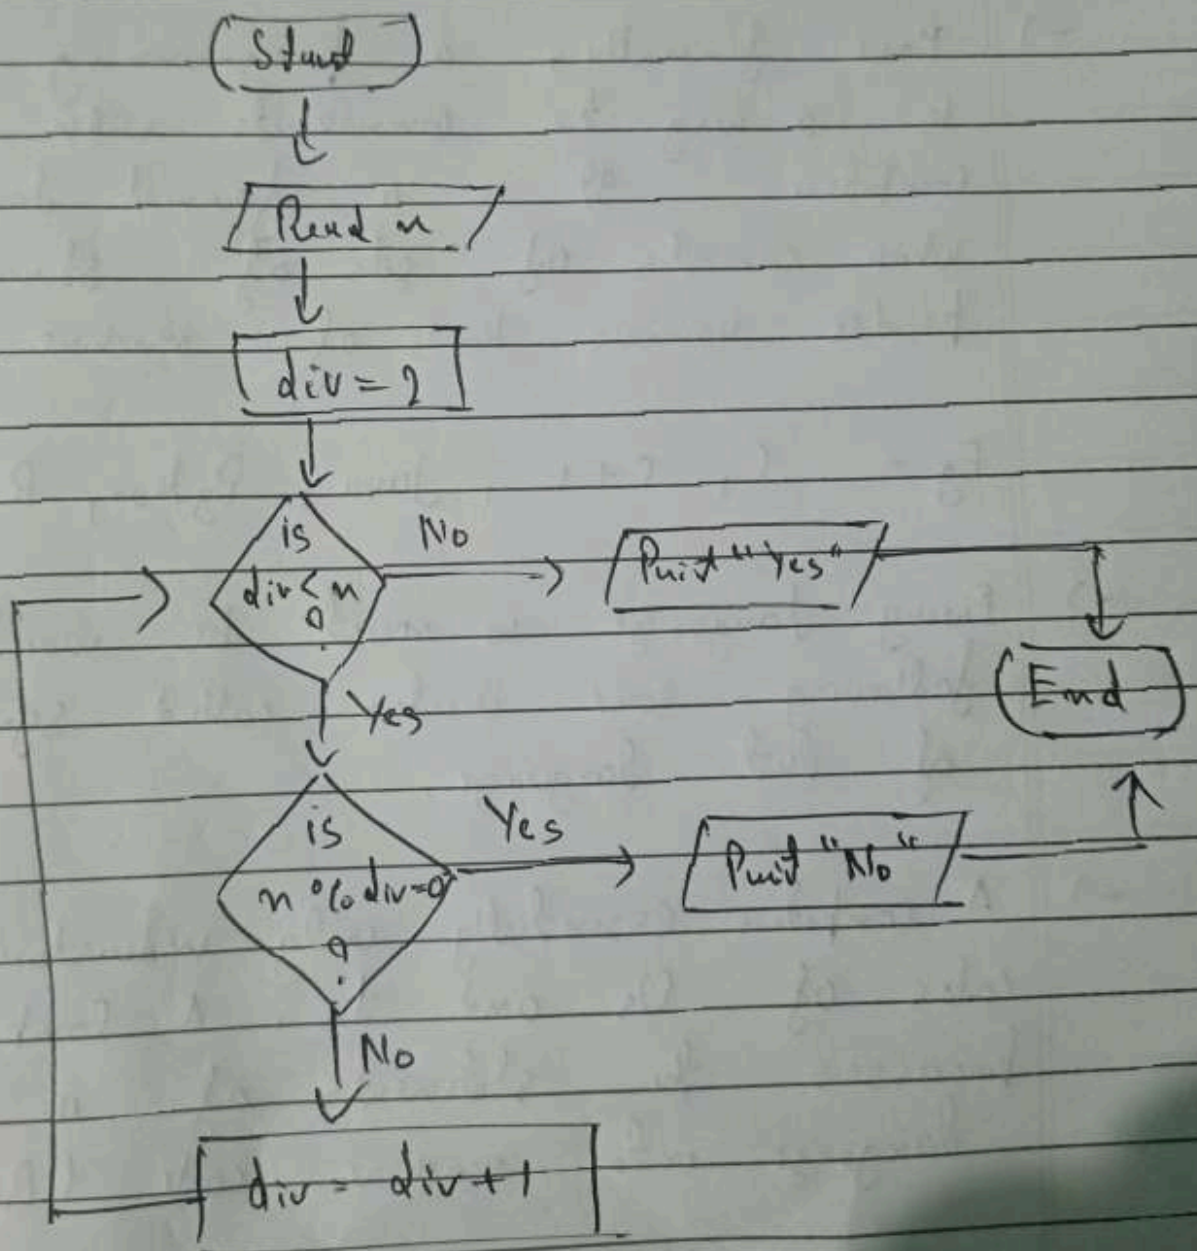 Start
Read n
div = 2
is
div < n
?
No
Print "Yes"
End
Yes
is
n % div = 0
?
Yes
Print "No"
No
div = div + 1